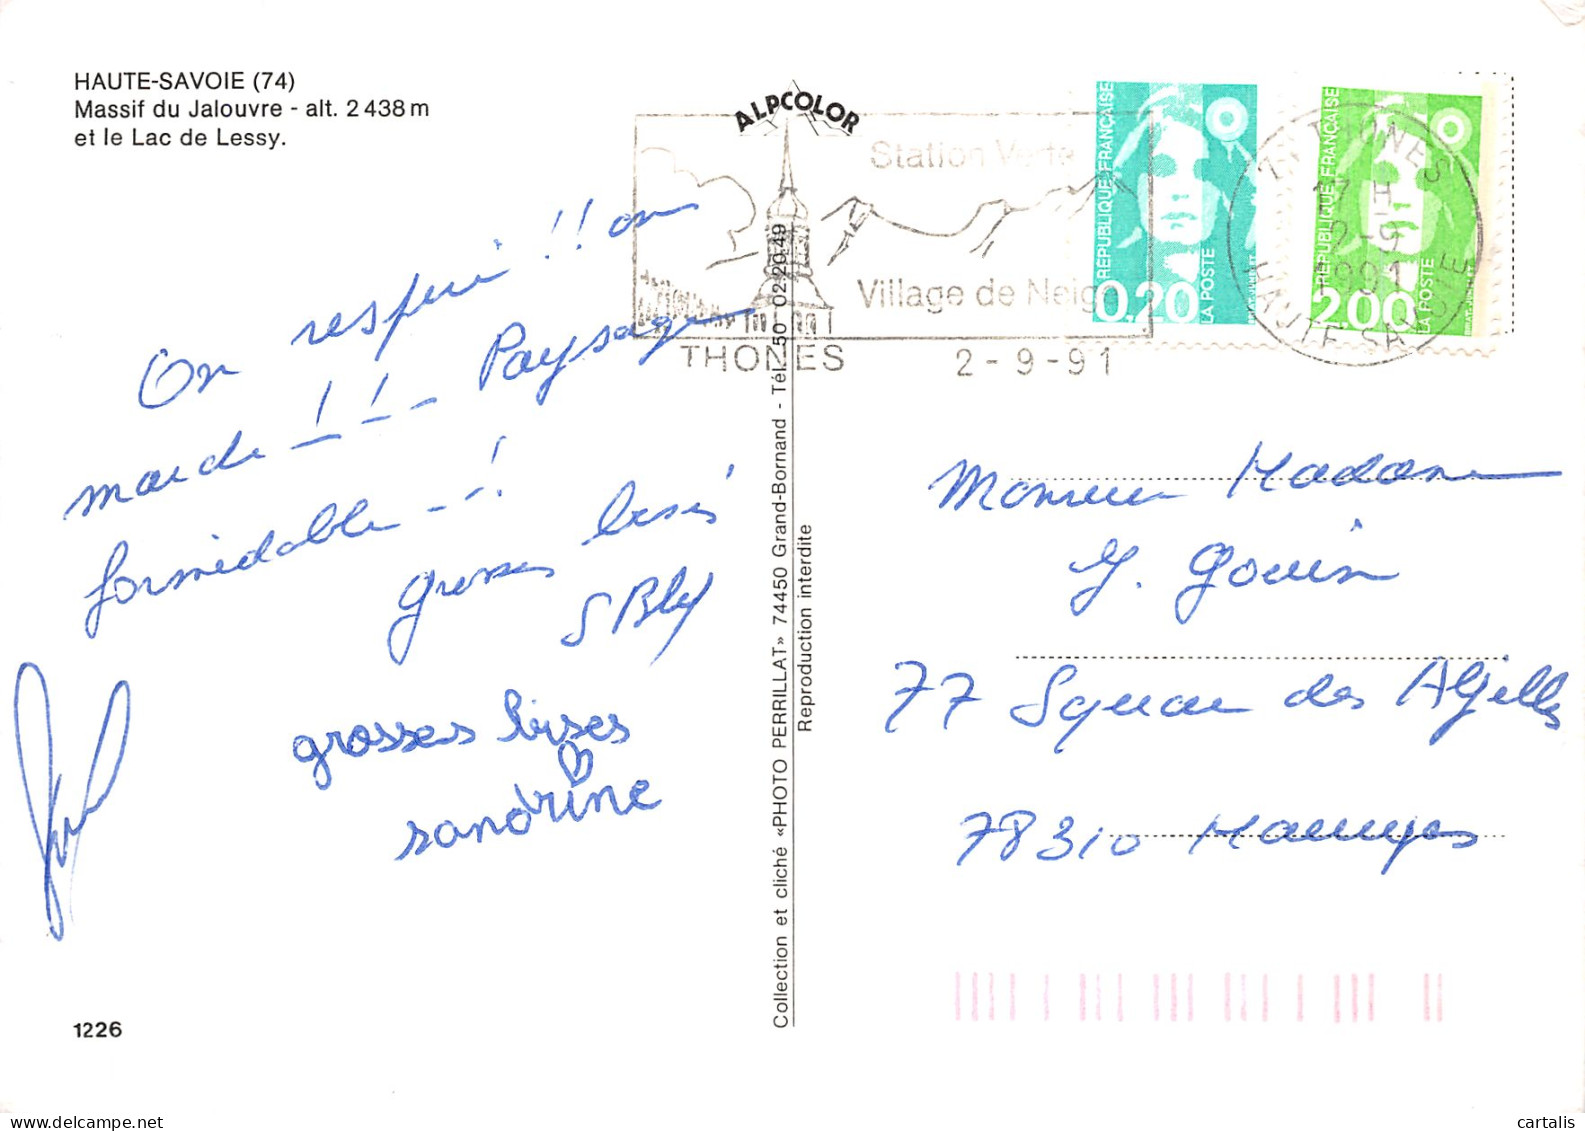 HAUTE-SAVOIE (74)
Massif du Jalouvre - alt. 2 438 m
et le Lac de Lessy.
On respire !! on
marche !! - Paysage
formidable - !
grosses bises
grosses bises
sandrine
1226
Collection et cliché «PHOTO PERRILLAT» 74450 Grand-Bornand - Tél. 50 02.20.49
Reproduction interdite
ALPCOLOR
Station Verte
Village de Neige
THONES 2-9-91
RÉPUBLIQUE FRANÇAISE
0,20
LA POSTE
RÉPUBLIQUE FRANÇAISE
2,00
LA POSTE
74 THONES
17 H
2-9
1991
HAUTE-SAVOIE
Monsieur Madame
Y. Gouin
77 Square des
78310 Maurepas
cartalis